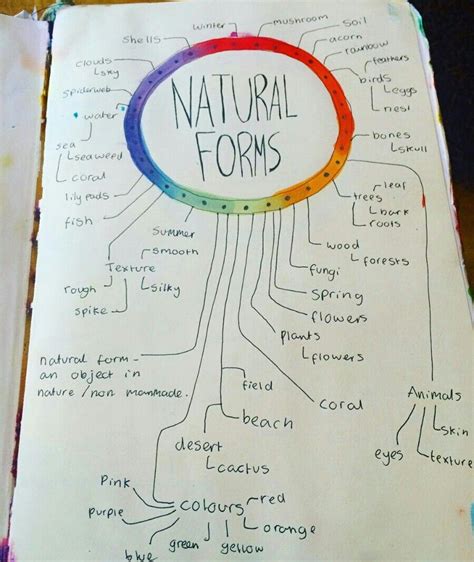 winter
mushroom
soil
shells
acorn
rainbow
clouds
sky
feathers
birds
eggs
nest
spiderweb
water
NATURAL
FORMS
sea
seaweed
coral
bones
skull
lily pads
fish
leaf
trees
bark
roots
summer
smooth
Texture
rough
silky
spike
wood
forests
fungi
spring
flowers
plants
flowers
natural form -
an object in
nature / non manmade.
field
beach
coral
Animals
skin
eyes
texture
desert
cactus
Pink
purple
colours
red
orange
blue
green
yellow